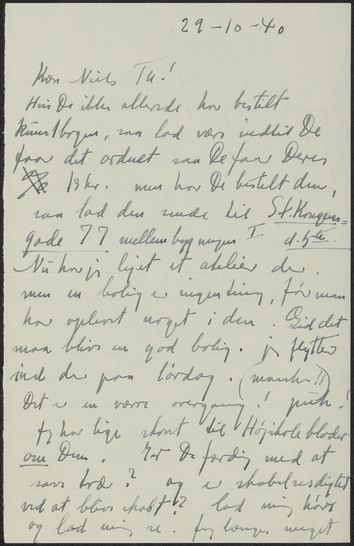 29-10-40
Kære Niels Th!
Hvis De ikke allerede har bestilt
kunstbogen, saa lad være indtil De
faar det ordnet saa De faar Deres
13 kr. men har De bestilt den,
saa lad den sende til St. Kongens=
gade 77 mellembygningen I d. 5te.
Nu har jeg lejet et atelier der.
men en bolig er ingenting, før man
har oplevet noget i den. Gid det
maa blive en god bolig. jeg flytter
ind der paa lørdag. (maaske!!)
Det er en værre overgang! puh!
Jeg har lige skrevet til Højskolebladet
om Dem. Er De færdig med at
save træ? og er skabelsesdigtet
ved at blive skabt? lad mig høre
og lad mig se. Jeg længes meget